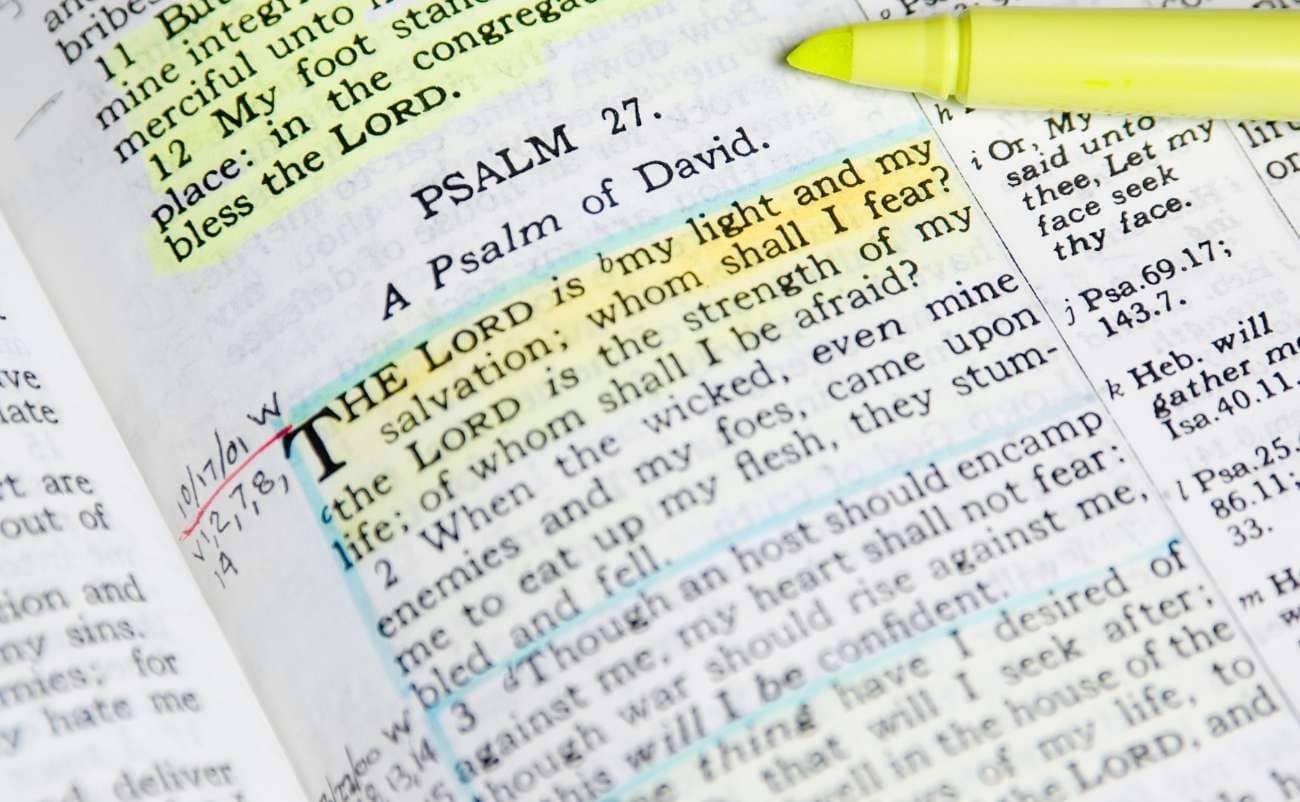 bribes
11 But
mine integri
merciful unto
12 My foot stand
place: in the congregat
bless the LORD.
PSALM 27.
A Psalm of David.
THE LORD is b my light and my
salvation; whom shall I fear?
c the LORD is the strength of my
life; of whom shall I be afraid?
2 When the wicked, even mine
enemies and my foes, came upon
me to eat up my flesh, they stum-
bled and fell.
3 d Though an host should encamp
against me, my heart shall not fear:
though war should rise against me,
this will I be confident.
thing have I desired of
that will I seek after;
ell in the house of the
of my life, to
the LORD, and
10/17/01 W
v 1,2,7,8,
14
W
13,14
ve
late
rt are
out of
tion and
ny sins.
mies; for
y hate me
deliver
h
i Or, My
said unto
thee, Let my
face seek
thy face.
j Psa.69.17;
143.7.
k Heb. will
gather me
Isa.40.11.
l Psa.25.
86.11;
33.
m H
or